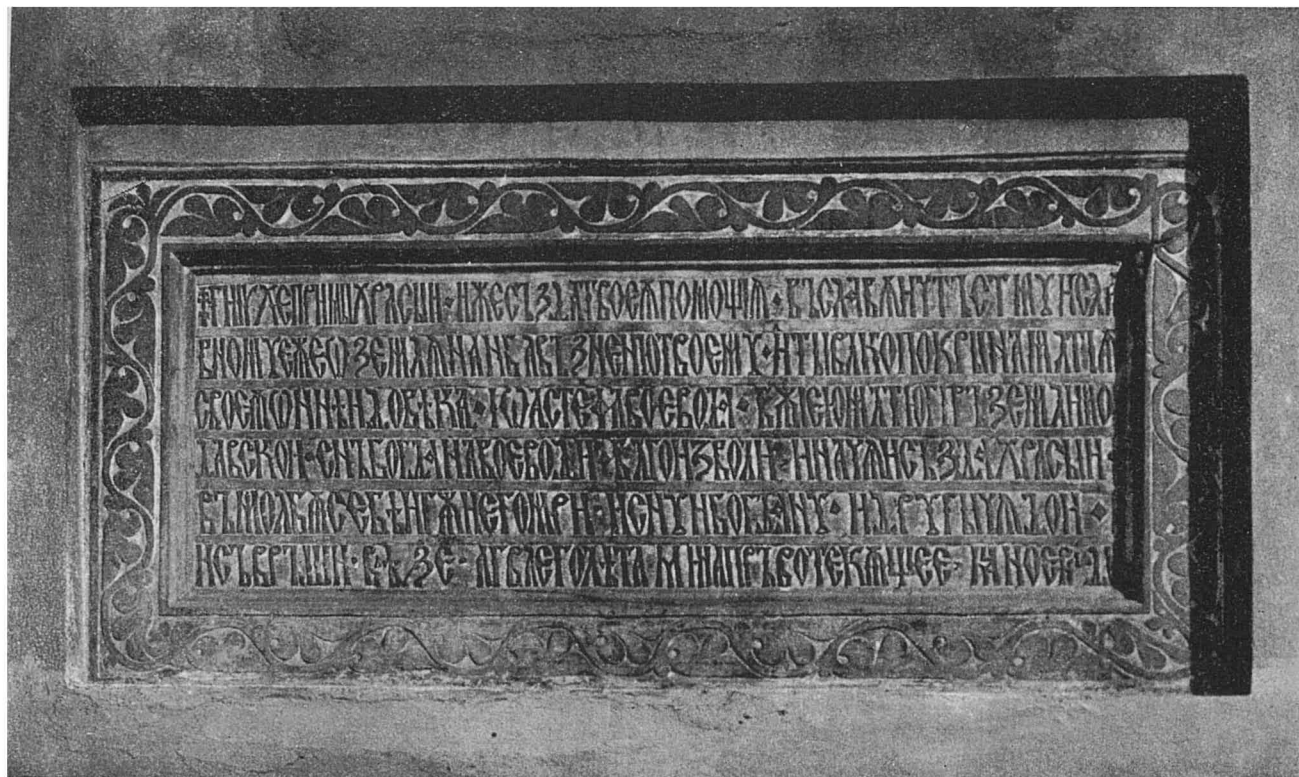 г҃и їу х҃е прїими храсъ сьи · иже създа твоеѫ помощїѫ · въ славѫ и чьсть ст҃му и сла
вномꙋ еже ѿ земѧ на н҃б възнесенїю твоемꙋ · и ты влⷣко покри нⷭ млⷭтїѫ
своеѫ ѿ н҃нѣ и до вѣка · Іѡ стефⷩ воевода · бж҃їею млⷭтїю гпⷣрь земли мо
лⷣавскои · сн҃ь богдана воеводи · бл҃гоизволи и начѧ и създа храⷨ сьи ·
въ молбѫ себѣ и гпⷣжи его м҃рїи и сн҃у ихь богданꙋ · и дрꙋгыим чадом ·
и съвръши · в лѣⷮ ҂з҃е · а гⷭпⷣва его лѣта м҃ и а҃ пръвотекѫщее · мцⷭа ноеⷨ · л҃